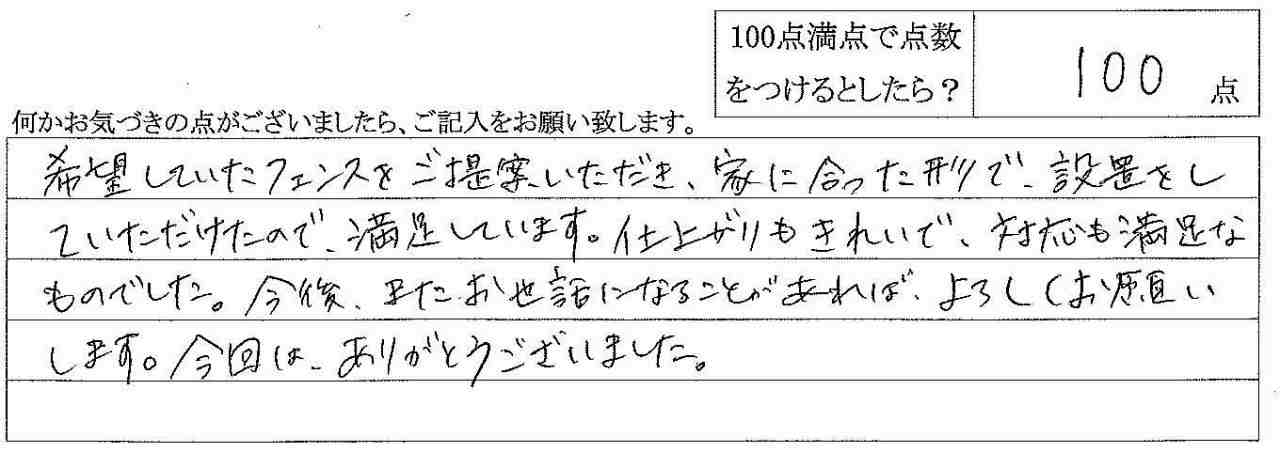 100点満点で点数
をつけるとしたら？
100 点
何かお気づきの点がございましたら、ご記入をお願い致します。
希望していたフェンスをご提案いただき、家に合った形で、設置をし
ていただけたので、満足しています。仕上がりもきれいで、対応も満足な
ものでした。今後、またお世話になることがあれば、よろしくお願い
します。今回は、ありがとうございました。